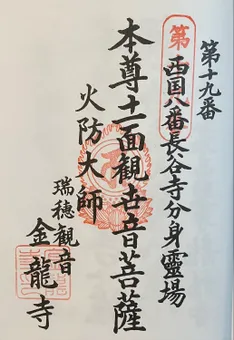 第十九番
第西国八番長谷寺分身靈場
本尊十一面觀世音菩薩
火防大師
瑞穂観音
金龍寺